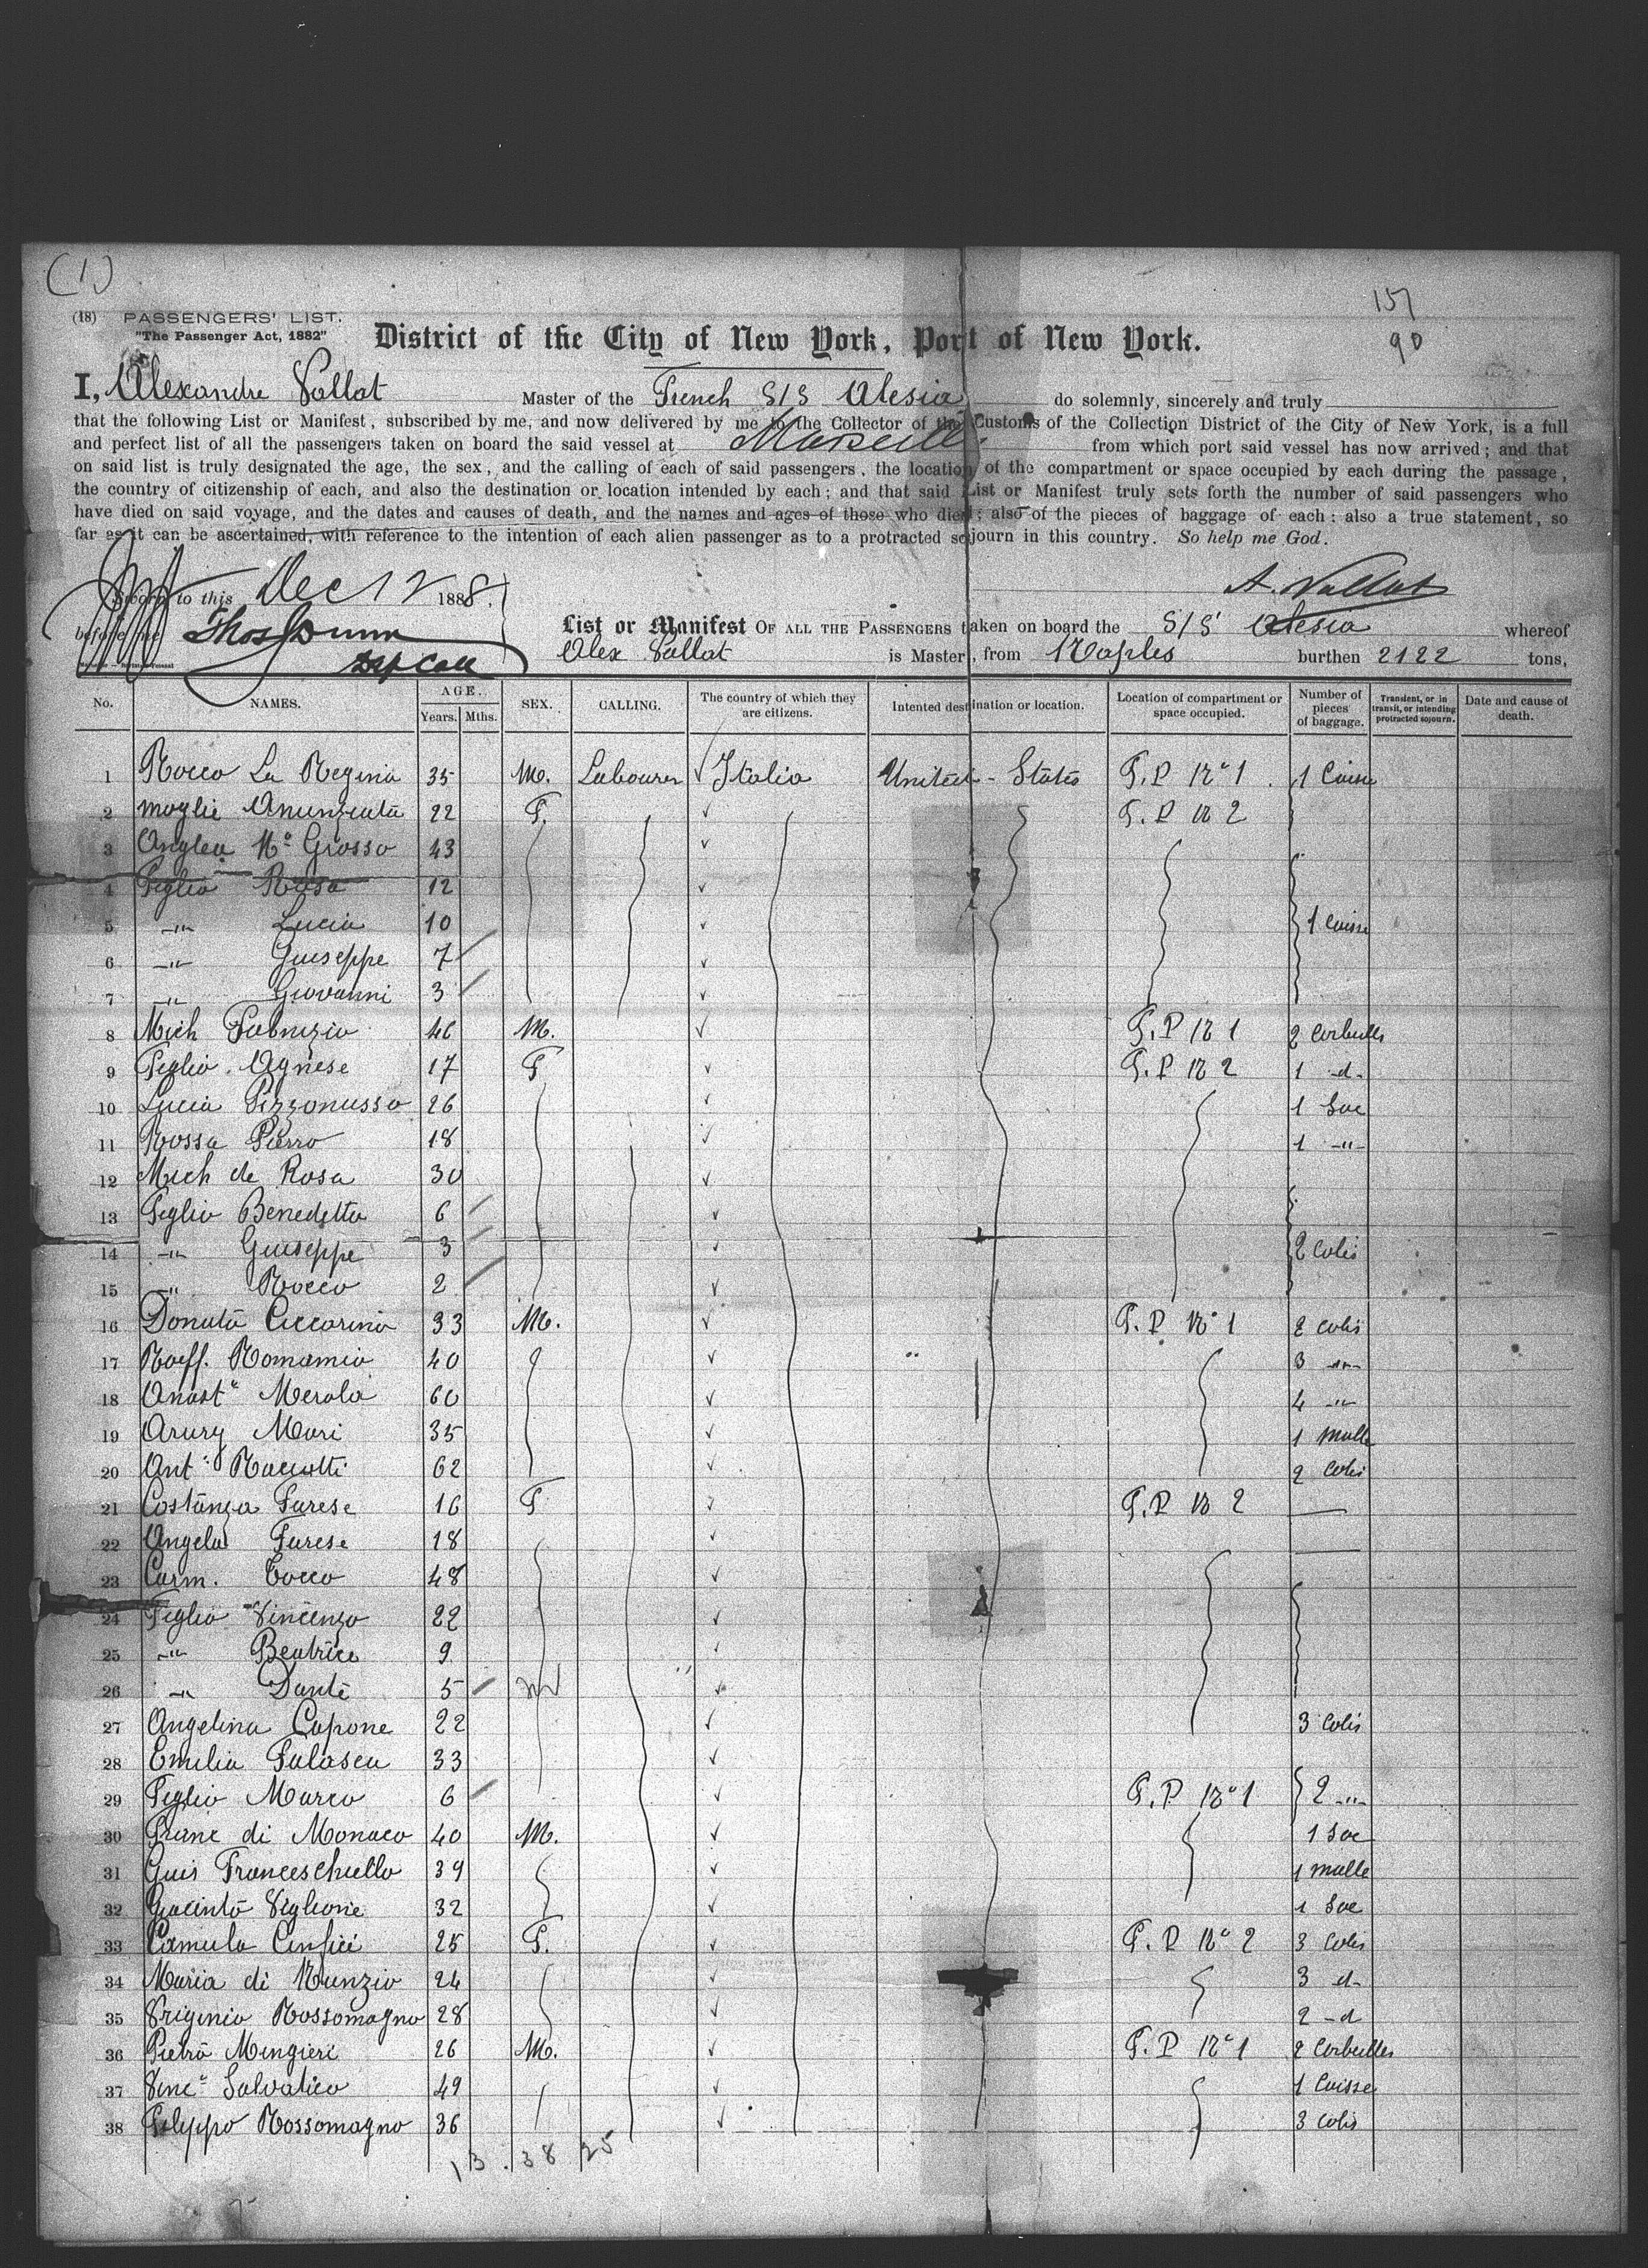 (1)
157
90
(18) PASSENGERS' LIST.
"The Passenger Act, 1882"
District of the City of New York, Port of New York.
I, Alexandre Vallat Master of the French S/S Alesia do solemnly, sincerely and truly
that the following List or Manifest, subscribed by me, and now delivered by me to the Collector of the Customs of the Collection District of the City of New York, is a full
and perfect list of all the passengers taken on board the said vessel at Marseille from which port said vessel has now arrived; and that
on said list is truly designated the age, the sex, and the calling of each of said passengers, the location of the compartment or space occupied by each during the passage,
the country of citizenship of each, and also the destination or location intended by each; and that said List or Manifest truly sets forth the number of said passengers who
have died on said voyage, and the dates and causes of death, and the names and ages of those who died; also of the pieces of baggage of each: also a true statement, so
far as it can be ascertained, with reference to the intention of each alien passenger as to a protracted sojourn in this country. So help me God.
Sworn to this Dec 12 1888. A. Vallat
before me Thos Dunn Dep Coll
List or Manifest OF ALL THE PASSENGERS taken on board the S/S Alesia whereof
Alex Vallat is Master, from Naples burthen 2122 tons,
No. NAMES. AGE. Years. Mths. SEX. CALLING. The country of which they are citizens. Intented destination or location. Location of compartment or space occupied. Number of pieces of baggage. Transient, or in transit, or intending protracted sojourn. Date and cause of death.
1 Rocco La Regina 35 M. Labourer Italia United-States T.P No 1 1 Caisse
2 moglie Anunziata 22 F. T.P No 2
3 Anglea Ma Grosso 43
4 Figlio Rosa 12
5 -"- Lucia 10 1 Caisse
6 -"- Guiseppe 7
7 -"- Giovanni 3
8 Mich Fabrizio 46 M. T.P No 1 2 Corbeilles
9 Figlio Agnese 17 F T.P No 2 1 -d-
10 Lucia Pizzonusso 26 1 Sac
11 Rossa Pierro 18 1 -"-
12 Mich de Rosa 30
13 Figlio Benedetto 6
14 -"- Guiseppe 3 2 Colis
15 -"- Rocco 2
16 Donato Ciccarino 33 M. T.P No 1 2 colis
17 Raff. Romamio 40 3 -"-
18 Anast. Merola 60 4 -"-
19 Arury Mari 35 1 Malle
20 Ant. 62 2 Colis
21 Costanza Farese 16 F T.P No 2 —
22 Angela Farese 18 —
23 Carm. Cocco 48
24 Figlio Vincenzo 22
25 -"- Beatrice 9
26 -"- Dante 5
27 Angelina Capone 22 3 Colis
28 Emilia Falasca 33
29 Figlio Marco 6 T.P No 1 2 -"-
30 Franc di Monaco 40 M. 1 Sac
31 Guis Franceschiello 39 1 Malle
32 Giacinto Viglione 32 1 Sac
33 Camula 25 F. T.P No 2 3 Colis
34 Maria di Nunzio 24 3 -d-
35 Vriginia Rossomagno 28 2 -d
36 Pietro Mingieri 26 M. T.P No 1 2 Corbeilles
37 Vinc. Salvatico 49 1 Caisse
38 Filippo Rossomagno 36 3 Colis
13. 38 25